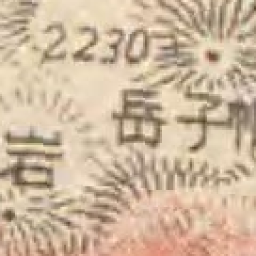 2230
岳子帽
岩